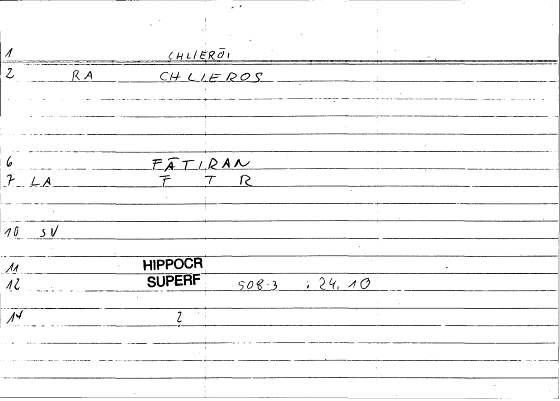 1 CHLIERŌI
2 RA CHLIEROS
6 FĀTIRAN
7 LA F T R
10 SV
11 HIPPOCR
12 SUPERF 508.3 : 24.10
14 2